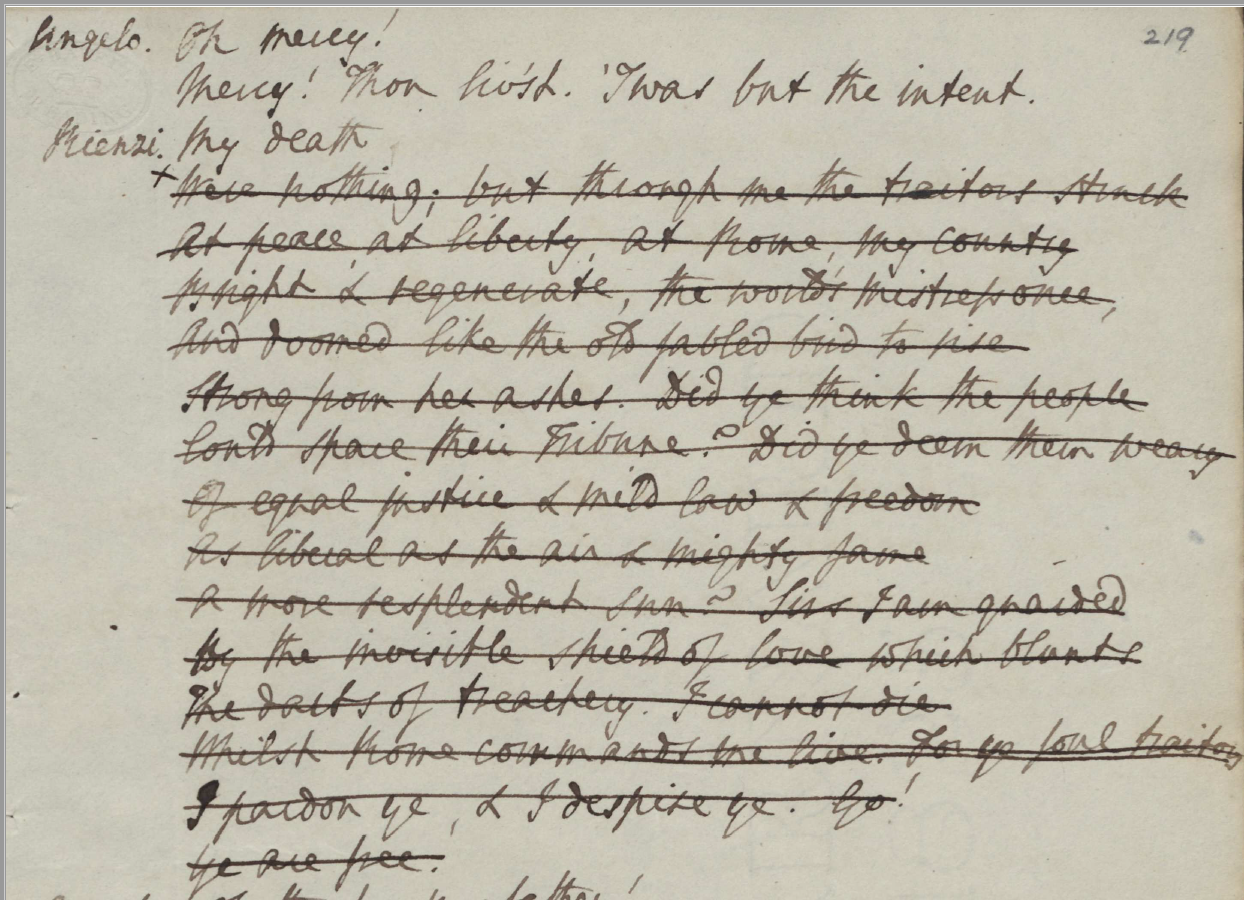 219
Angelo. Oh mercy!
Mercy! Thou liv'st. 'Twas but the intent.
Rienzi. My death
+ Were nothing; but through me the traitors struck
At peace, at liberty, at Rome, my country
Bright & regenerate, the world's mistress once,
And doomed like the old fabled bird to rise
Strong from her ashes. Did ye think the people
Could spare their Tribune? Did ye deem them weary
Of equal justice & mild law & freedom
As liberal as the air & mighty fame
A more resplendent sun? Sirs I am guarded
By the invisible shield of love which blunts
The darts of treachery. I cannot die
Whilst Rome commands me live. For ye foul traitors
I pardon ye, & I despise ye. Go!
Ye are free.